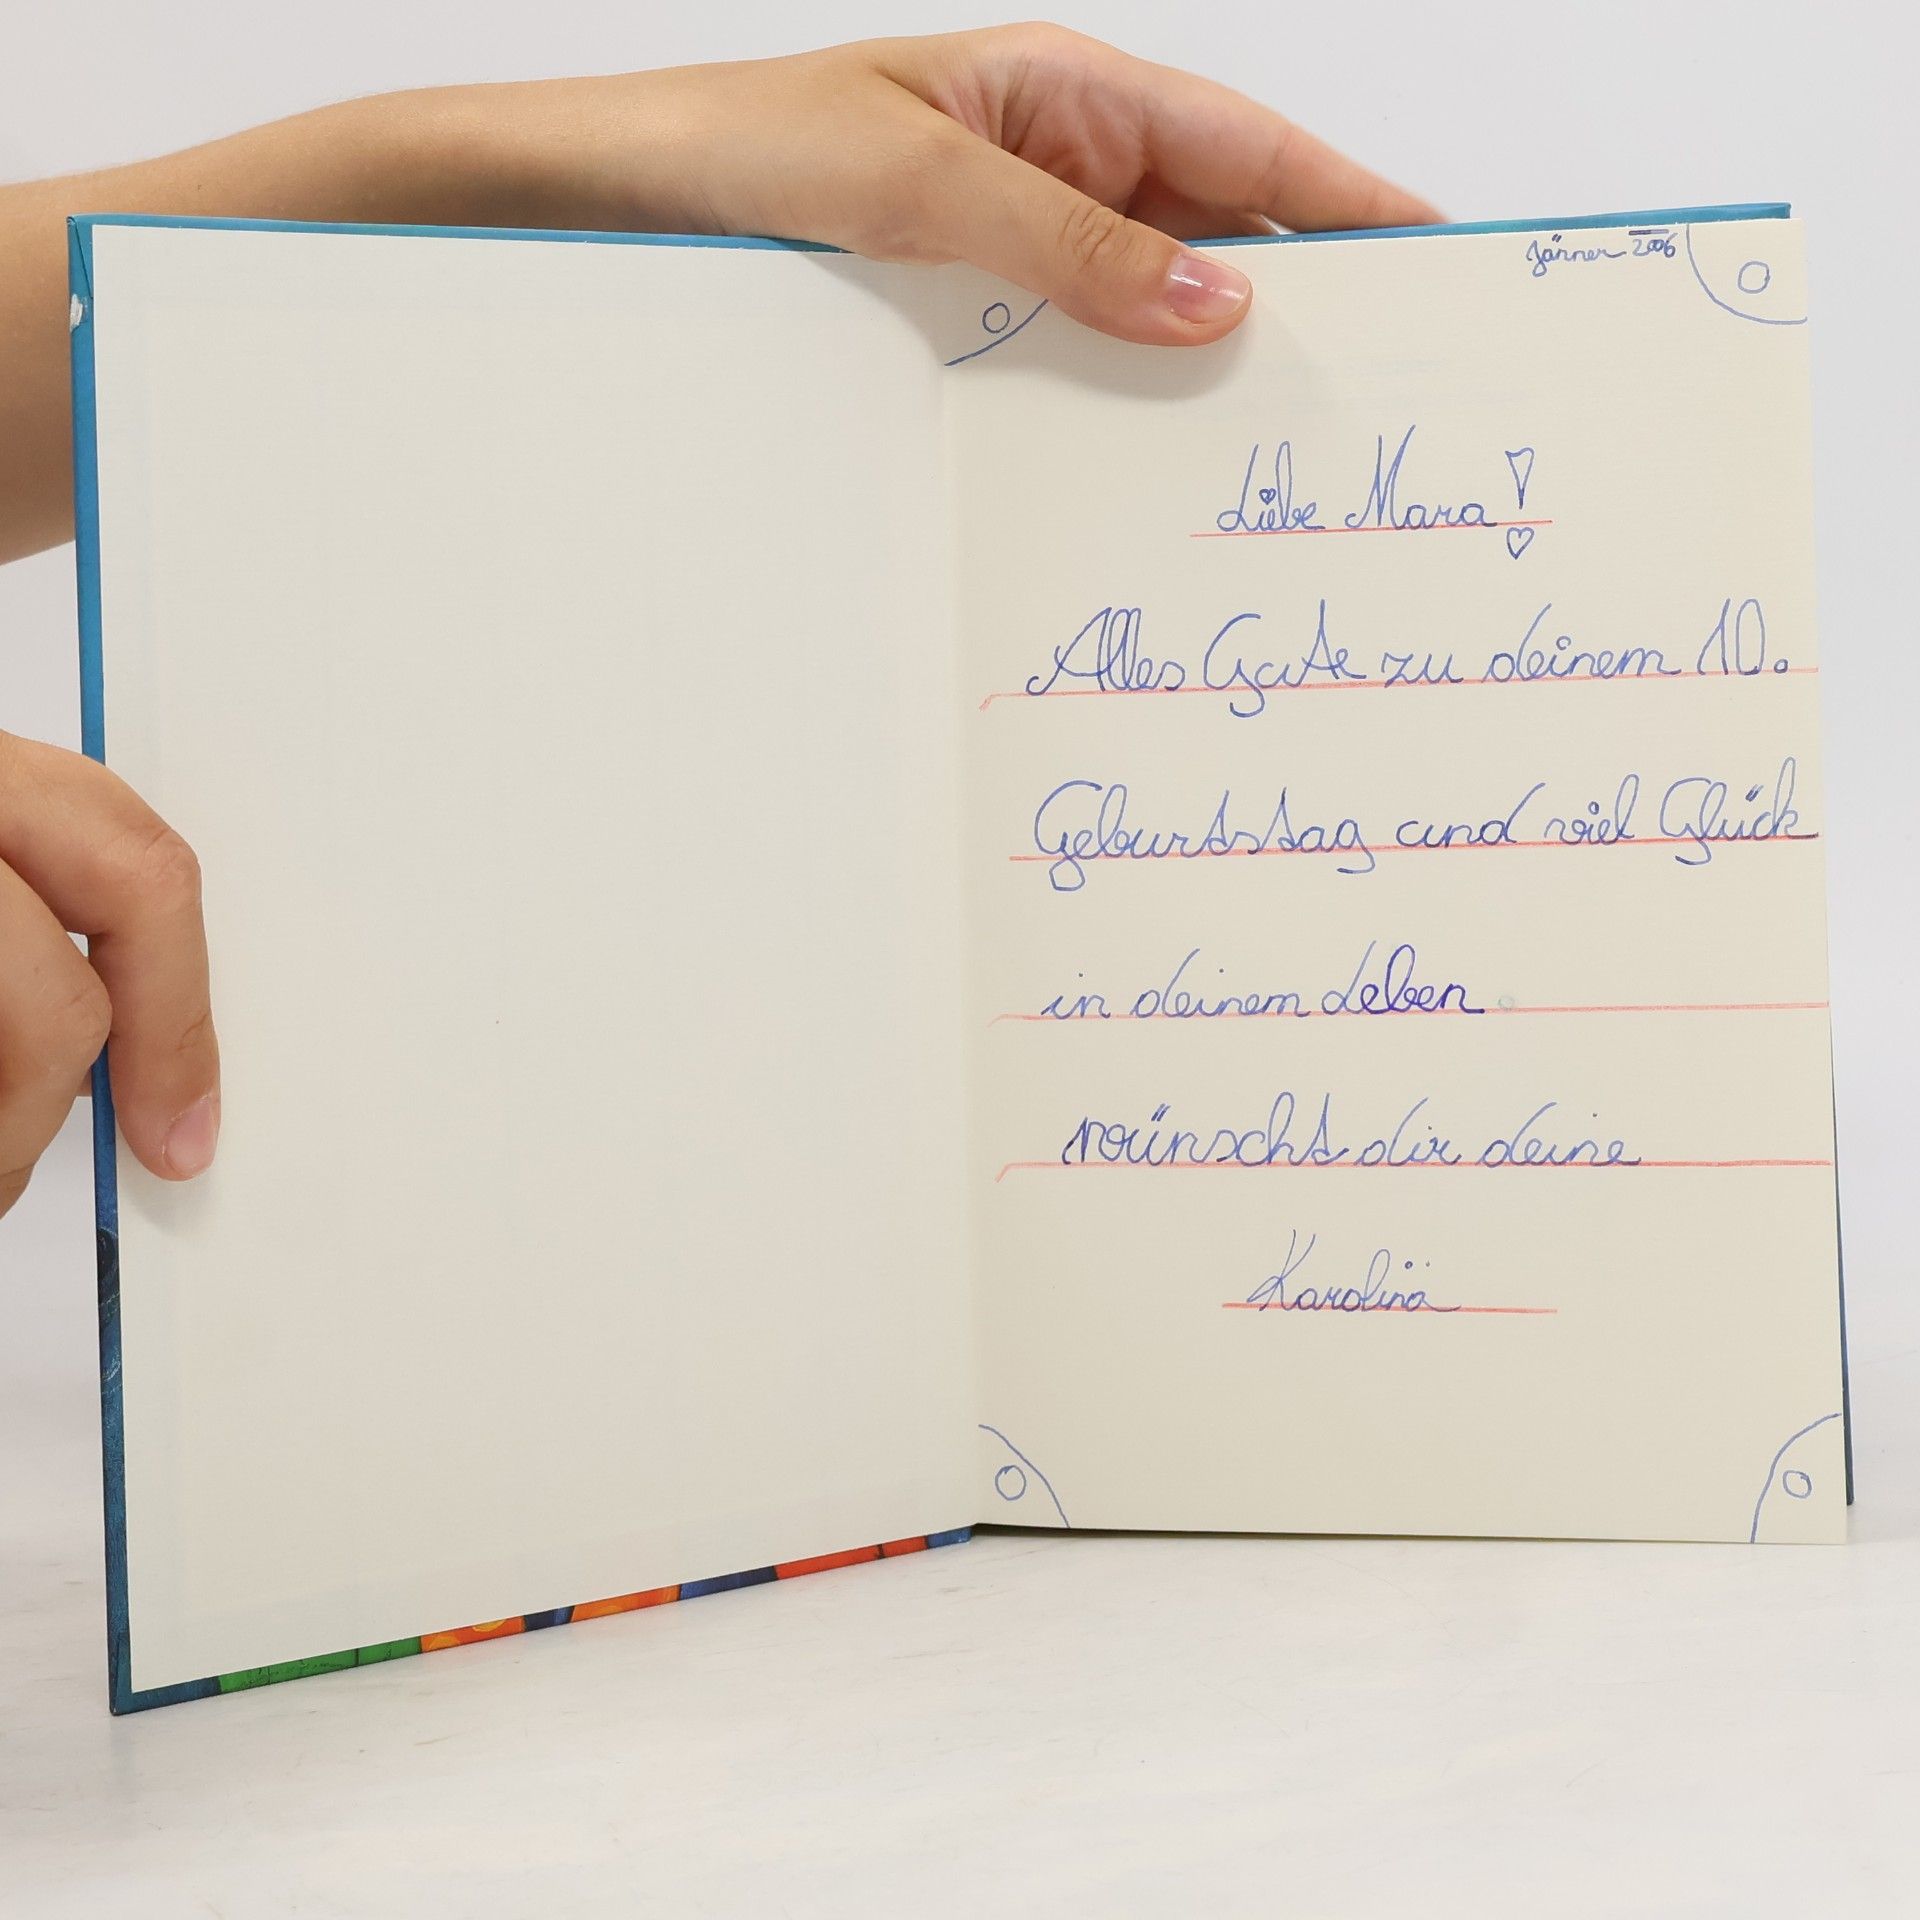 Jänner 2006
Liebe Mara!
Alles Gute zu deinem 10.
Geburtstag und viel Glück
in deinem Leben
wünscht dir deine
Karolina